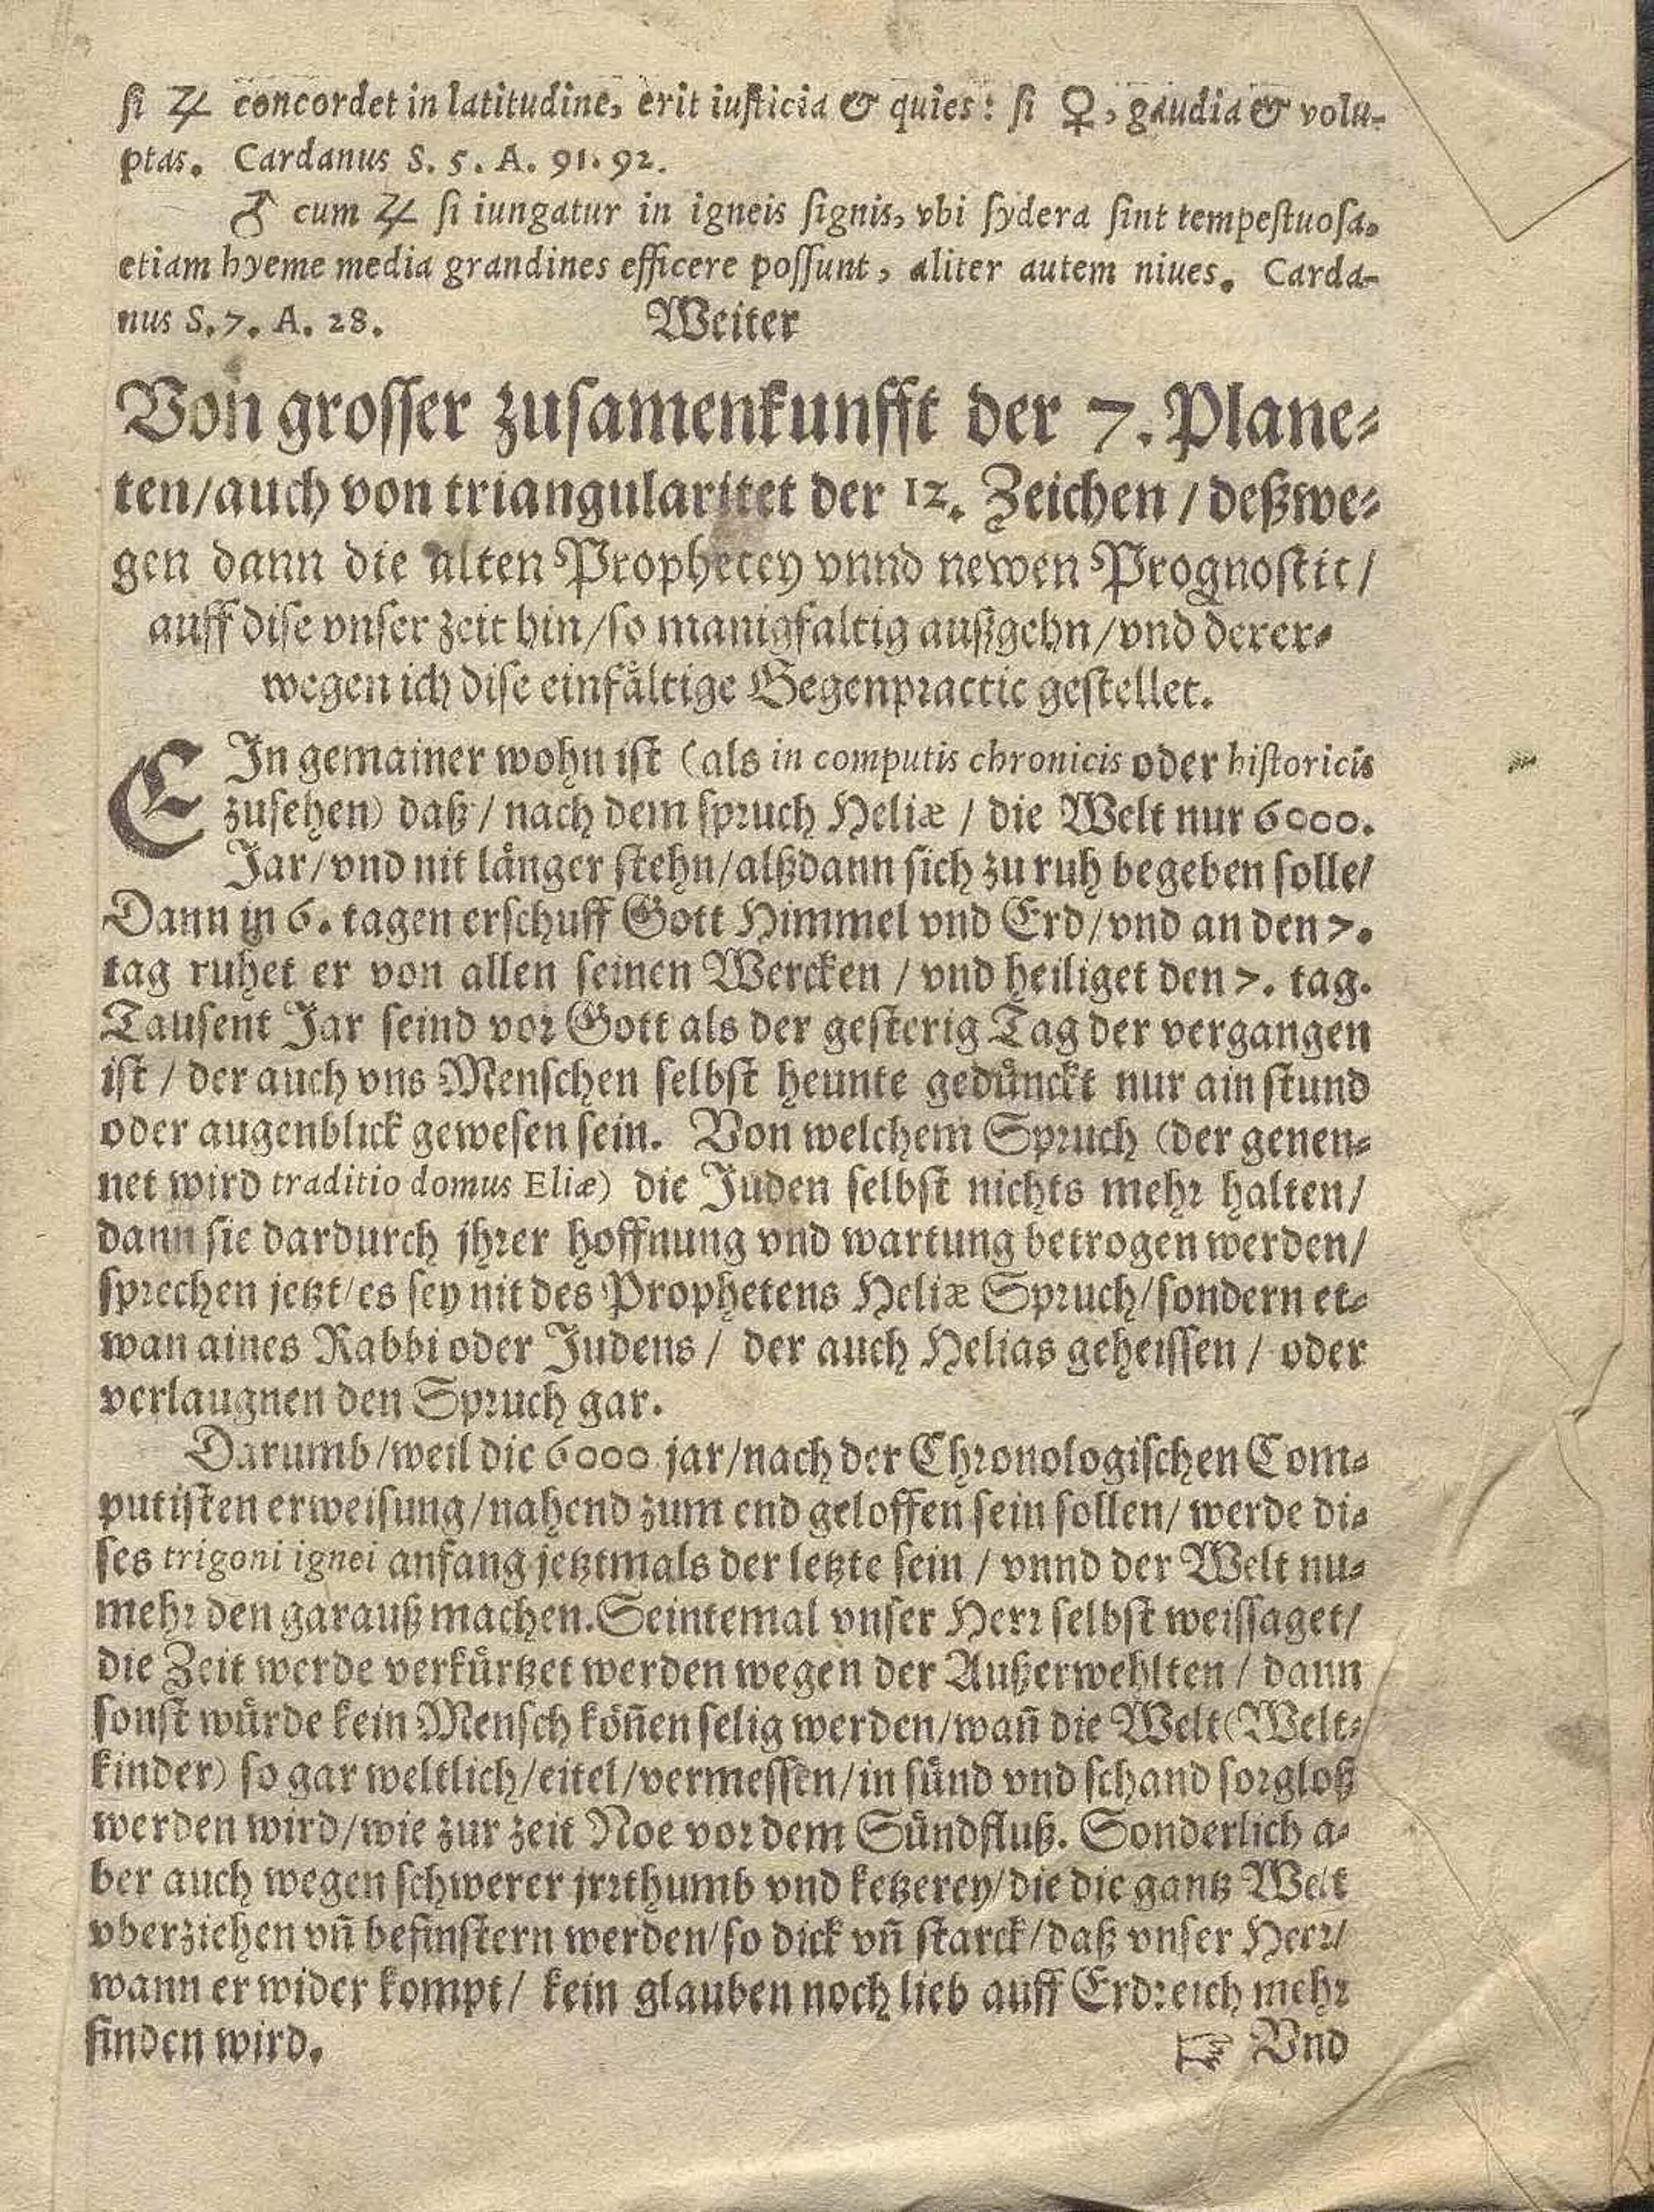 ſi ♃ concordet in latitudine, erit iuſticia & quies: ſi ♀, gaudia & volu-
ptas. Cardanus S. 5. A. 91. 92.
♂ cum ♃ ſi iungatur in igneis ſignis, vbi ſydera ſint tempeſtuoſa,
etiam hyeme media grandines efficere poſſunt, aliter autem niues. Carda-
nus S. 7. A. 28. Weiter
Von groſſer zuſamenkunfft der 7. Plane⸗
ten/auch von triangularitet der 12. Zeichen / deßwe⸗
gen dann die alten Prophecey vnnd newen Prognoſtic/
auff diſe vnſer zeit hin/ſo manigfaltig außgehn/vnd derer⸗
wegen ich diſe einfaͤltige Gegenpractic geſtellet.
EIn gemainer wohn iſt (als in computis chronicis oder hiſtoricis
zuſehen) daß / nach dem ſpruch Heliæ / die Welt nur 6000.
Jar/vnd nit laͤnger ſtehn/alßdann ſich zu ruh begeben ſolle/
Dann in 6. tagen erſchuff Gott Himmel vnd Erd/vnd an den 7.
tag ruhet er von allen ſeinen Wercken / vnd heiliget den 7. tag.
Tauſent Jar ſeind vor Gott als der geſterig Tag der vergangen
iſt / der auch vns Menſchen ſelbſt heunte geduͤnckt nur ain ſtund
oder augenblick geweſen ſein. Von welchem Spruch (der genen⸗
net wird traditio domus Eliæ) die Juden ſelbſt nichts mehr halten/
dann ſie dardurch jhrer hoffnung vnd wartung betrogen werden/
ſprechen jetzt/es ſey nit des Prophetens Heliæ Spruch/ſondern et⸗
wan aines Rabbi oder Judens / der auch Helias geheiſſen / oder
verlaugnen den Spruch gar.
Darumb/weil die 6000 jar/nach der Chronologiſchen Com⸗
putiſten erweiſung/nahend zum end geloffen ſein ſollen/ werde di⸗
ſes trigoni ignei anfang jetztmals der letzte ſein / vnnd der Welt nu⸗
mehr den garauß machen. Seintemal vnſer Herr ſelbſt weiſſaget/
die Zeit werde verkuͤrtzet werden wegen der Außerwehlten / dann
ſonſt wuͤrde kein Menſch koͤn̄en ſelig werden/wan̄ die Welt (Welt⸗
kinder) ſo gar weltlich/eitel/vermeſſen/in ſuͤnd vnd ſchand ſorgloß
werden wird/wie zur zeit Noe vor dem Suͤndfluß. Sonderlich a⸗
ber auch wegen ſchwerer jrrthumb vnd ketzerey/die die gantz Welt
vberziehen vn̄ befinſtern werden/ſo dick vn̄ ſtarck/daß vnſer Herr/
wann er wider kompt/ kein glauben noch lieb auff Erdreich mehr
finden wird. ☞ Vnd